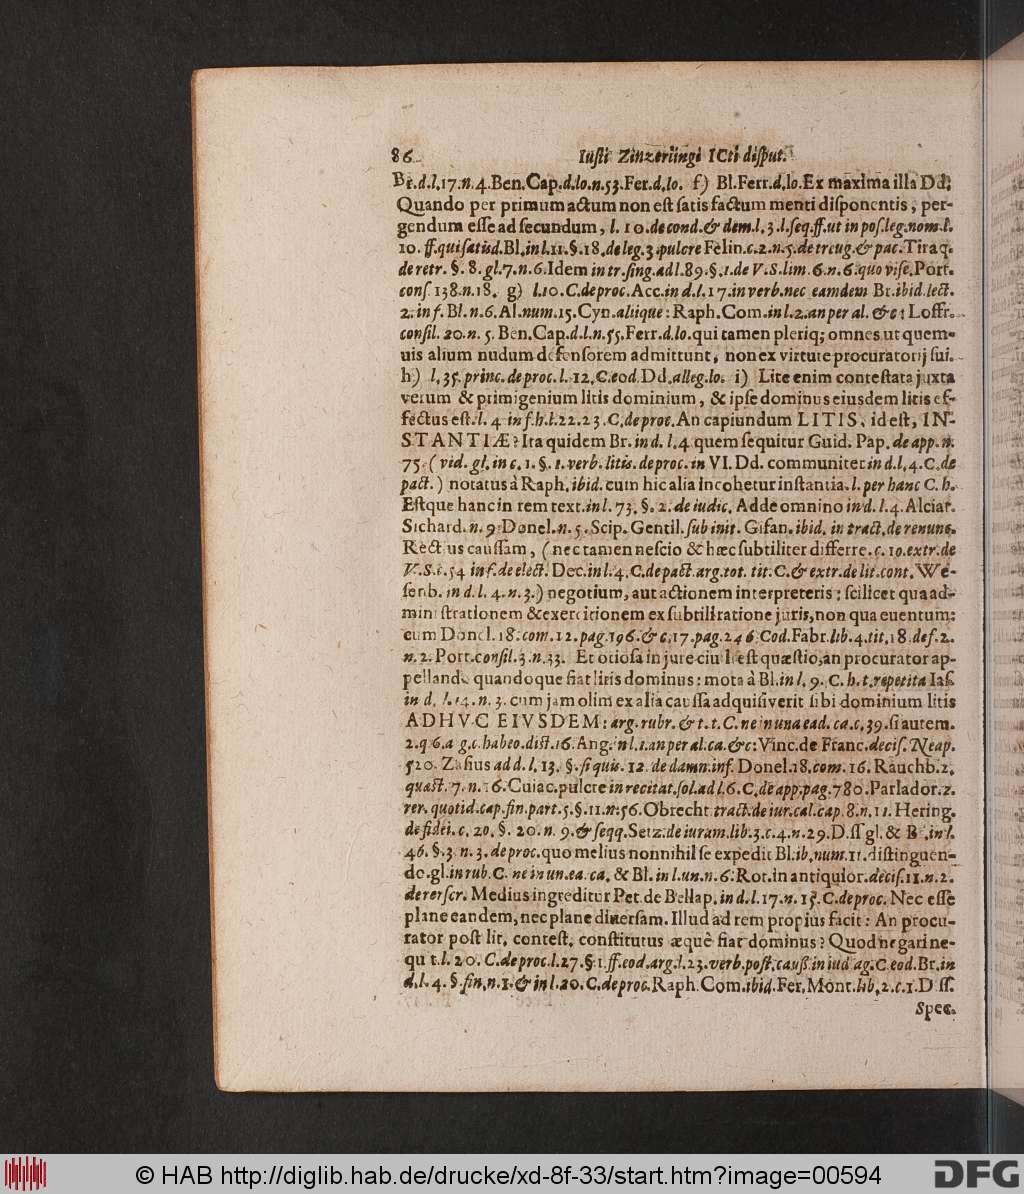 86 Iuſti Zinzerlingi ICti diſput.
Br.d.l.17.n.4.Ben.Cap.d.lo.n.53.Fer.d.lo. f) Bl.Ferr.d.lo.Ex maxima illa Dd;
Quando per primum actum non eſt ſatis factum menti diſponentis, per-
gendum eſſe ad ſecundum, l. 10.de cond.& dem.l.3.l.ſeq.ff.ut in poſ.leg.nom.l.
10. ff.qui ſatisd.Bl.in l.11.§.18.de leg.3.pulcre Felin.c.2.n.5.de treug.& pac.Tiraq.
de retr. §. 8. gl.7.n.6.Idem in tr.ſing.ad l.89.§.1.de V.S.lim.6.n.6.quo viſe.Port.
conſ.138.n.18. g) l.10.C.de proc.Acc.in d.l.17.in verb.nec eamdem Br.ibid.lect.
2.in f.Bl.n.6.Al.num.15.Cyn.aliique: Raph.Com.in l.2.an per al.&c: Loffr.
conſil.20.n. 5. Ben.Cap.d.l.n.55.Ferr.d.lo.qui tamen pleriq; omnes ut quem-
uis alium nudum defenſorem admittunt, non ex virtute procuratorij ſui.
h) l.35.princ.de proc.l.12.C.eod.Dd.alleg.lo. i) Lite enim conteſtata juxta
verum & primigenium litis dominium, & ipſe dominus eiusdem litis ef-
fectus eſt.l. 4 in f.h.l.22.23.C.de proc.An capiundum LITIS, id eſt, IN-
STANTIÆ? Ita quidem Br.in d.l.4 quem ſequitur Guid. Pap. de app.n.
75.(vid. gl.in c.1.§.1.verb.litis.de proc.in VI. Dd. communiter in d.l.4.C.de
pact.) notatus à Raph.ibid. cum hic alia incohetur inſtantia.l.per hanc C.h.
Eſtque hanc in rem text.in l.73.§.2.de iudic. Adde omnino in d.l.4.Alciat.
Sichard.n.9.Donel.n.5.Scip. Gentil.ſub init. Gifan.ibid. in tract.de renunc.
Rectius cauſſam, (nec tamen neſcio & hæc ſubtiliter differre.c.10.extr.de
V.S.l.54 in f.de elect. Dec.in l.4.C.de pact.arg.tot.tit.C.& extr.de lit.cont. We-
ſenb.in d.l.4.n.3.) negotium, aut actionem interpreteris: ſcilicet qua ad-
miniſtrationem & exercitionem ex ſubtili ratione juris, non qua euentum:
cum Donel.18.com.12.pag.196.& c.17.pag.246.Cod.Fabr.lib.4.tit.18.def.2.
n.2.Port.conſil.3.n.33. Et otioſa in jure ciuili eſt quæſtio, an procurator ap-
pellando quandoque fiat litis dominus: mota à Bl.in l.9.C.h.t.repetita Iaſ.
in d. l.14.n.3.cum jam olim ex alia cauſſa adquiſiverit ſibi dominium litis
ADHVC EIVSDEM: arg.rubr.& t.t.C.ne in una ead.ca.c.39.ſi autem.
2.q 6.a g.c.habeo.diſt.16.Ang.in l.1.an per al.ca.&c: Vinc.de Franc.deciſ.Neap.
520.Zaſius ad d.l.13.§.ſi quis.12.de damn.inf.Donel.18.com.16.Rauchb.2.
quæſt.7.n.16.Cuiac.pulcre in recitat.ſol.ad l.6.C.de app.pag.780.Parlador.2.
rer.quotid.cap.fin.part.5.§.11.n.56.Obrecht tract.de iur.cal.cap.8.n.11.Hering.
de fidei.c.20.§.20.n.9.& ſeqq.Setz.de iuram.lib.3.c.4.n.29.D.ſſ gl. & Br.in l.
46.§.3.n.3.de proc.quo melius nonnihil ſe expedit Bl.ib.num.11.diſtinguen-
do.gl.in rub.C.ne in un.ea.ca. & Bl.in l.un.n.6:Rot.in antiquior.deciſ.11.n.2.
de reſcr. Medius ingreditur Pet.de Bellap.in d.l.17.n.15.C.de proc. Nec eſſe
plane eandem, nec plane diuerſam. Illud ad rem propius facit: An procu-
rator poſt lit. conteſt. conſtitutus æquè fiat dominus? Quod negari ne-
qu t.l.20.C.de proc.l.27.§.1.ff.eod.arg.l.23.verb.poſt.cauſſ.in iud ag.C.eod.Br.in
d.l.4.§.fin.n.1.& in l.20.C.de proc.Raph.Com.ibid.Fer.Mont.lib.2.c.1.D ſſ.
Spec.
© HAB http://diglib.hab.de/drucke/xd-8f-33/start.htm?image=00594
DFG